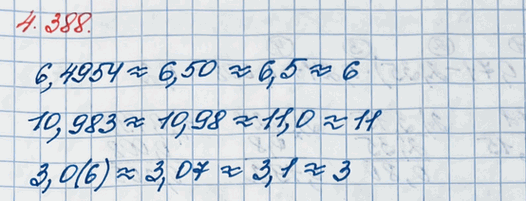 4.388.
6,4954 ≈ 6,50 ≈ 6,5 ≈ 6
10,983 ≈ 10,98 ≈ 11,0 ≈ 11
3,0(6) ≈ 3,07 ≈ 3,1 ≈ 3